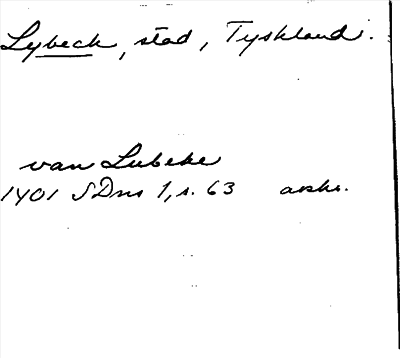 Lybeck, stad, Tyskland.
van Lubeke
1401 SDns 1, s. 63 avskr.